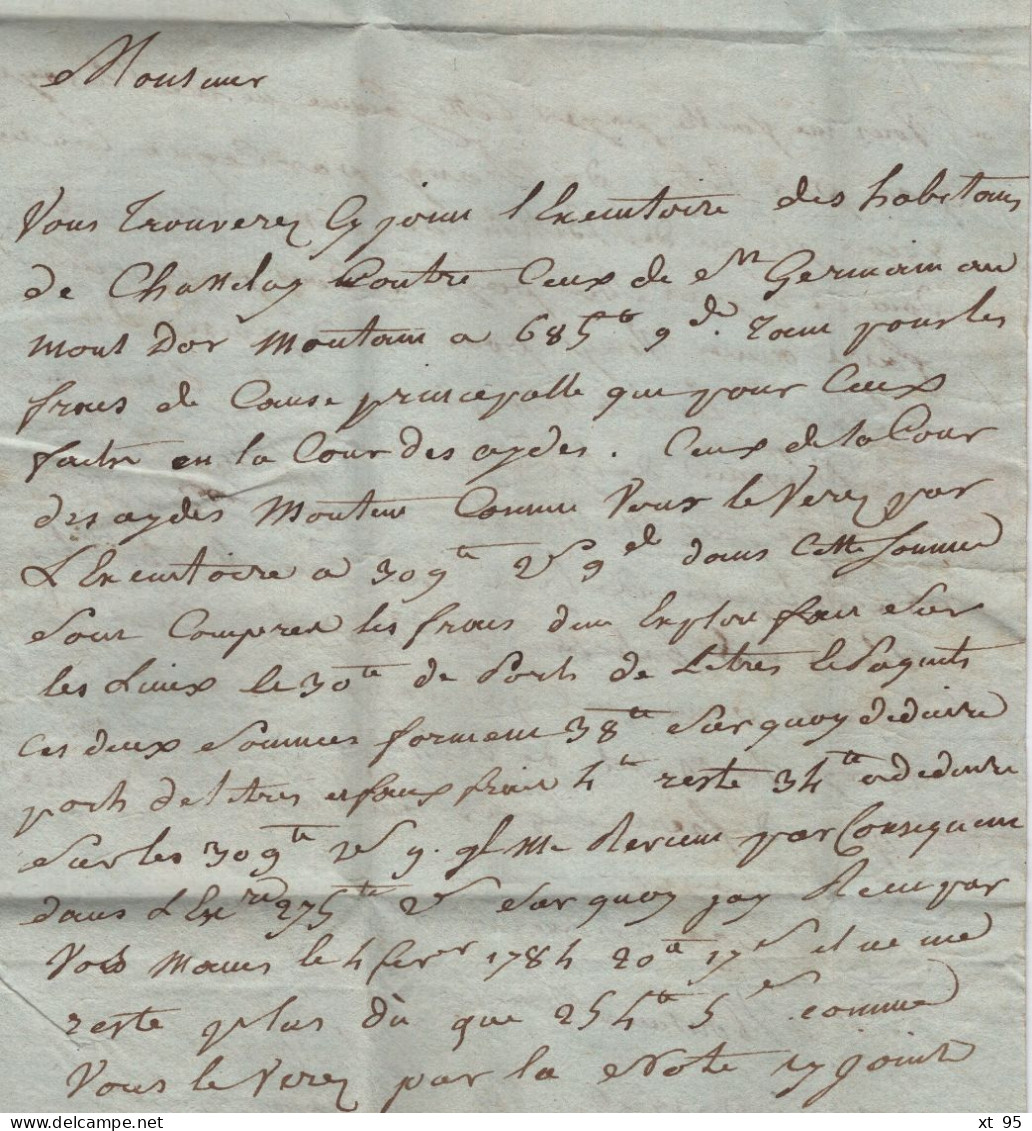 Monsieur
Vous trouverez cy joint l'Executoire des habitans
de Chasselay Contre Ceux de St Germain au
mont Dor Montant a 685tt 9d. tant pour les
frais de Cause principalle que pour Ceux
faits en la Cour des aydes. Ceux de la Cour
des aydes Montent Comme Vous le Verez par
L'Executoire a 309tt 2s 9d dans cette somme
sont Compris les frais dun Exploit fait sur
les Lieux le 30tt de ports de Lettres le paquets
ces deux sommes forment 38tt sur quoy deduire
ports de lettres et faux frais 4tt reste 34tt a deduire
sur les 309tt 2s 9. ql Me Revient par Consequent
dans L'Exre 275tt 2s sur quoy jay Recu par
Vos Mains le 4 fevr 1784 20tt 17s il ne me
reste plus dû que 254tt 5s comme
Vous le Verez par la Note cy jointe
xt 95